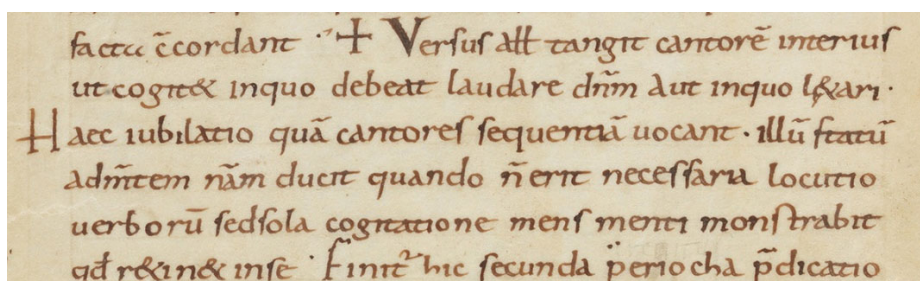 factu c̄cordant · + Versus aƚƚ tangit cantorē interius
ut cogit& inquo debeat laudare dn̄m aut inquo l&ari·
Haec iubilatio quā cantores sequentiā uocant · illū statū
adm̄tem nr̄am ducit quando n̄ erit necessaria locutio
uerborū sedsola cogitatione mens menti monstrabit
qđ r&in& inse · Finit̄ hic secunda periocha p̄dicatio